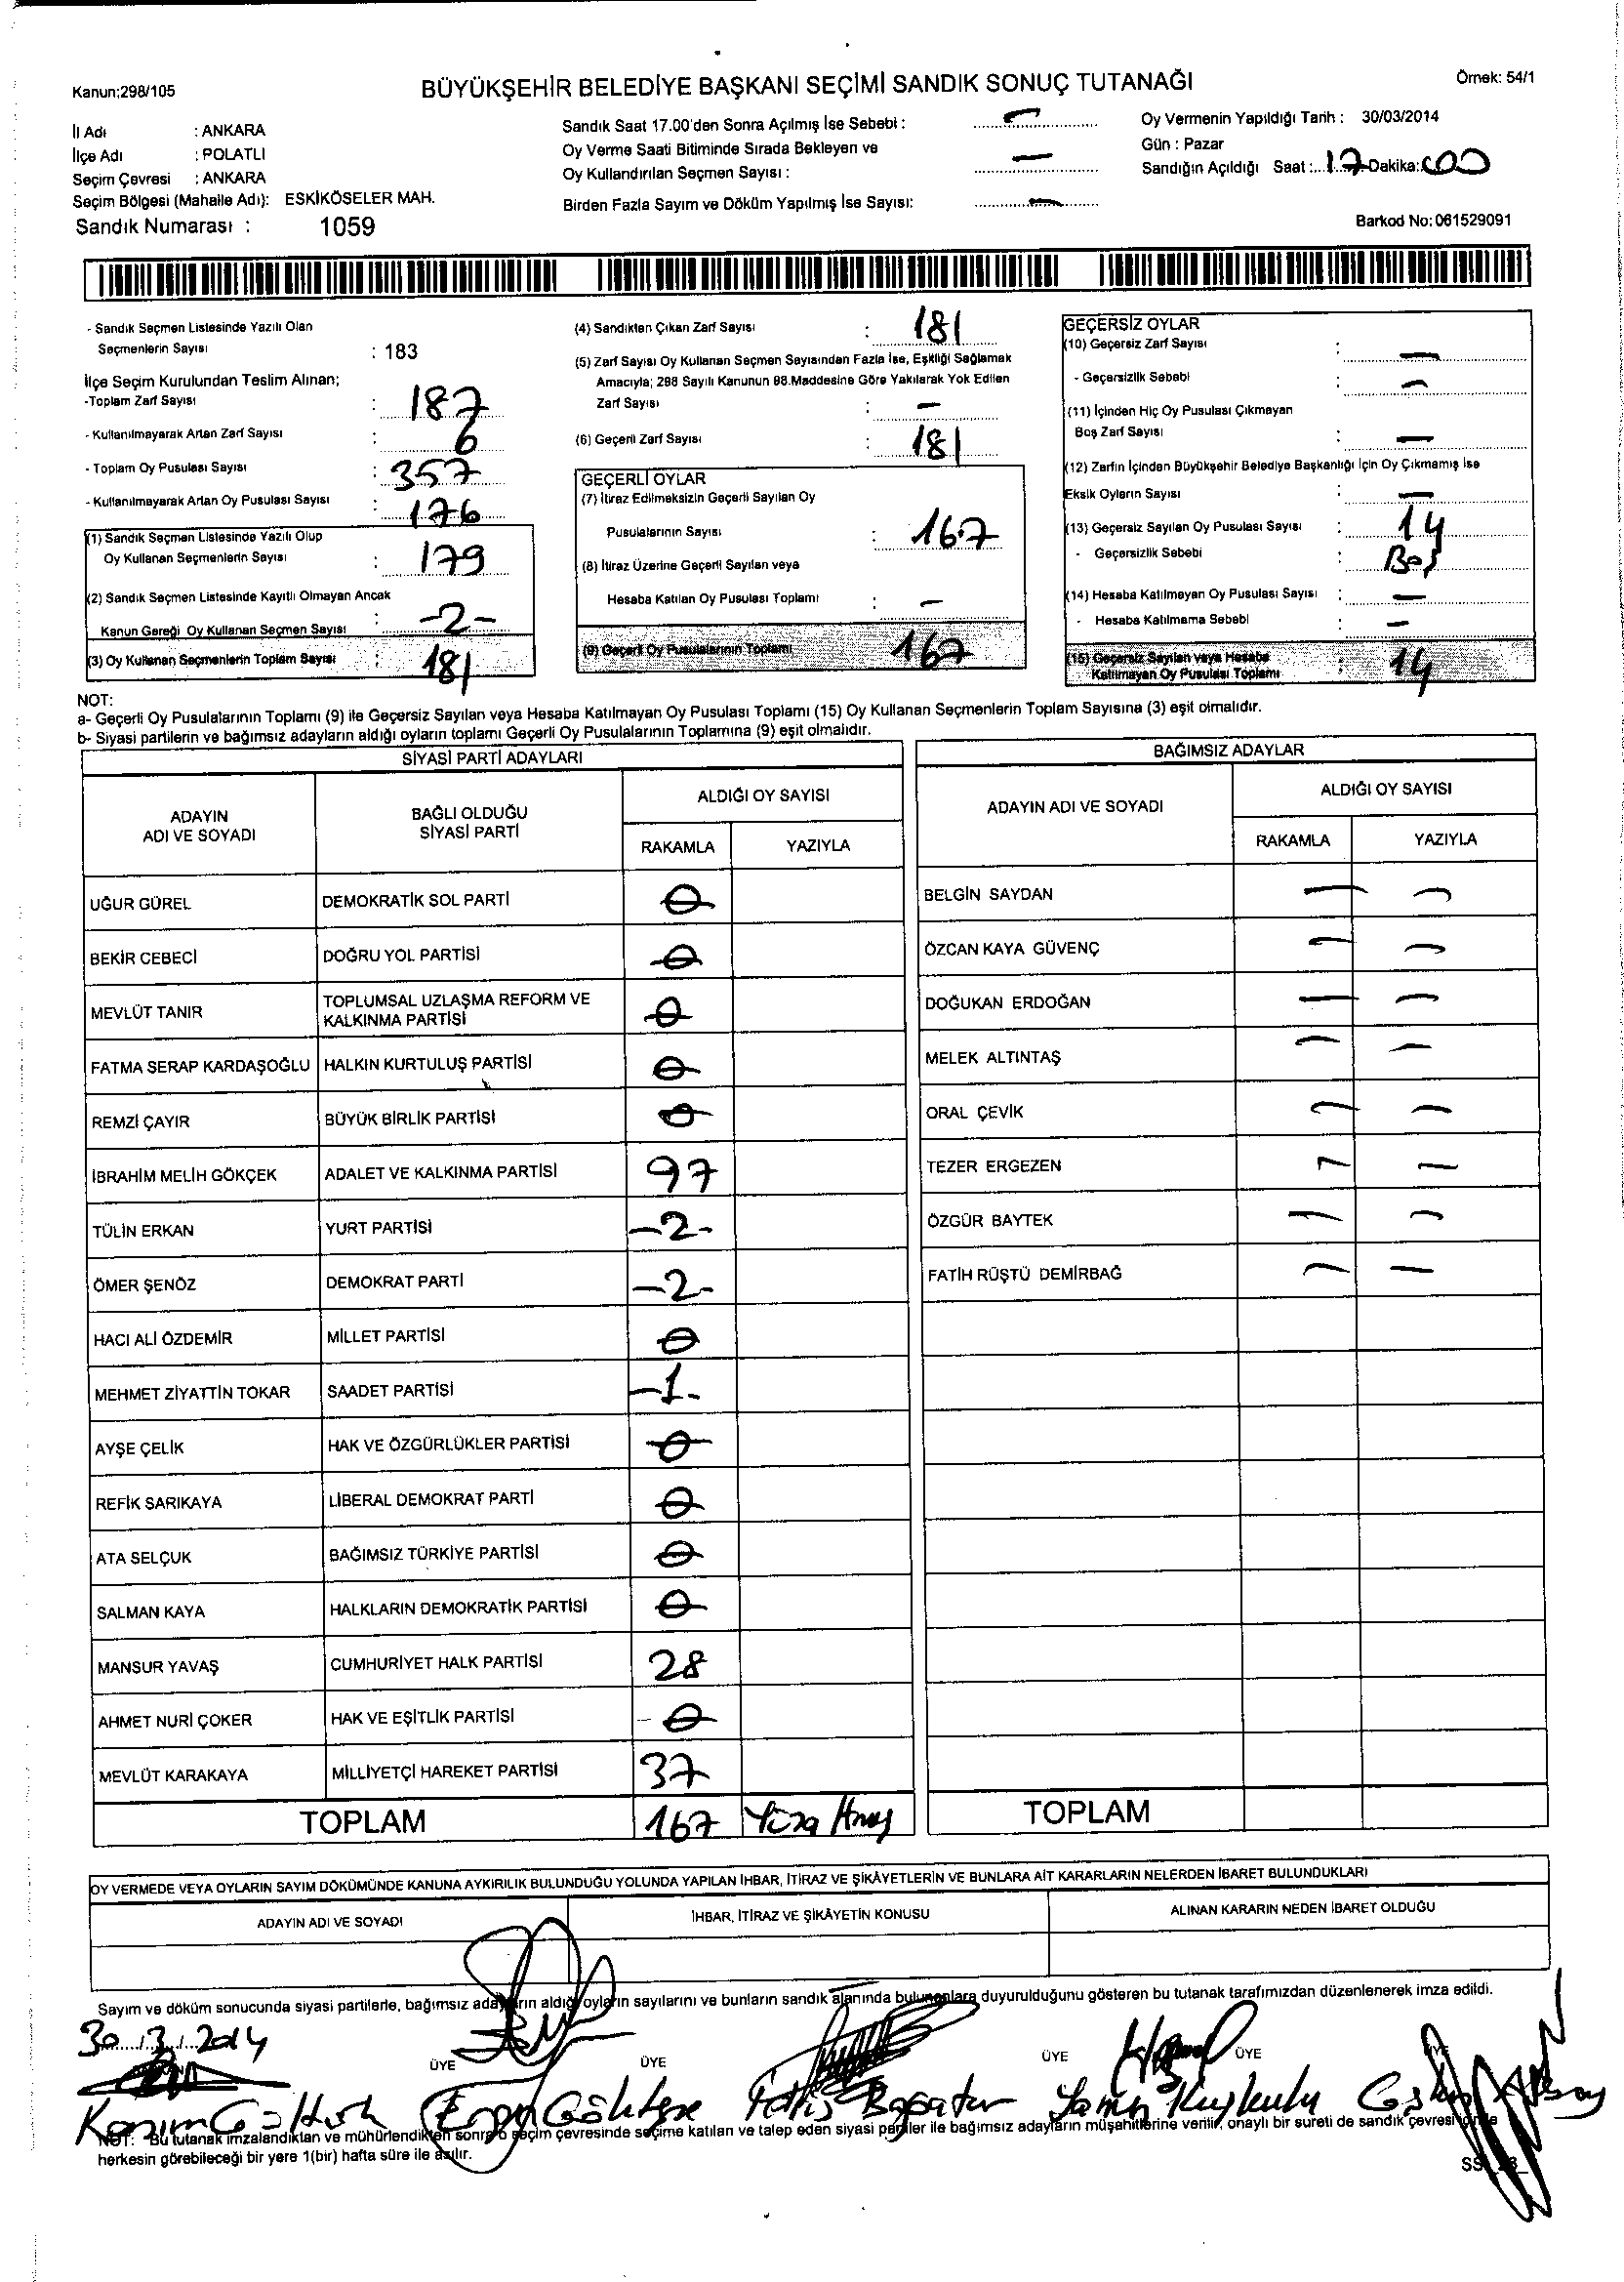 Kanun:298/105
BÜYÜKŞEHİR BELEDİYE BAŞKANI SEÇİMİ SANDIK SONUÇ TUTANAĞI
Örnek: 54/1
İl Adı : ANKARA
İlçe Adı : POLATLI
Seçim Çevresi : ANKARA
Seçim Bölgesi (Mahalle Adı): ESKİKÖSELER MAH.
Sandık Numarası : 1059
Sandık Saat 17.00'den Sonra Açılmış İse Sebebi : –
Oy Verme Saati Bitiminde Sırada Bekleyen ve
Oy Kullandırılan Seçmen Sayısı : –
Birden Fazla Sayım ve Döküm Yapılmış İse Sayısı: –
Oy Vermenin Yapıldığı Tarih : 30/03/2014
Gün : Pazar
Sandığın Açıldığı Saat :..17..Dakika: 00
Barkod No: 061529091
- Sandık Seçmen Listesinde Yazılı Olan
Seçmenlerin Sayısı : 183
İlçe Seçim Kurulundan Teslim Alınan;
-Toplam Zarf Sayısı : 187
- Kullanılmayarak Artan Zarf Sayısı : 6
- Toplam Oy Pusulası Sayısı : 357
- Kullanılmayarak Artan Oy Pusulası Sayısı : 176
(1) Sandık Seçmen Listesinde Yazılı Olup
Oy Kullanan Seçmenlerin Sayısı : 179
(2) Sandık Seçmen Listesinde Kayıtlı Olmayan Ancak
Kanun Gereği Oy Kullanan Seçmen Sayısı : -2-
(3) Oy Kullanan Seçmenlerin Toplam Sayısı : 181
(4) Sandıktan Çıkan Zarf Sayısı : 181
(5) Zarf Sayısı Oy Kullanan Seçmen Sayısından Fazla İse, Eşitliği Sağlamak
Amacıyla; 298 Sayılı Kanunun 98.Maddesine Göre Yakılarak Yok Edilen
Zarf Sayısı : –
(6) Geçerli Zarf Sayısı : 181
GEÇERLİ OYLAR
(7) İtiraz Edilmeksizin Geçerli Sayılan Oy
Pusulalarının Sayısı : 167
(8) İtiraz Üzerine Geçerli Sayılan veya
Hesaba Katılan Oy Pusulası Toplamı : –
(9) Geçerli Oy Pusulalarının Toplamı 167
GEÇERSİZ OYLAR
(10) Geçersiz Zarf Sayısı : –
- Geçersizlik Sebebi : –
(11) İçinden Hiç Oy Pusulası Çıkmayan
Boş Zarf Sayısı : –
(12) Zarfın İçinden Büyükşehir Belediye Başkanlığı İçin Oy Çıkmamış İse
Eksik Oyların Sayısı : –
(13) Geçersiz Sayılan Oy Pusulası Sayısı : 14
- Geçersizlik Sebebi : Boş
(14) Hesaba Katılmayan Oy Pusulası Sayısı : –
- Hesaba Katılmama Sebebi : –
(15) Geçersiz Sayılan veya Hesaba
Katılmayan Oy Pusulası Toplamı : 14
NOT:
a- Geçerli Oy Pusulalarının Toplamı (9) ile Geçersiz Sayılan veya Hesaba Katılmayan Oy Pusulası Toplamı (15) Oy Kullanan Seçmenlerin Toplam Sayısına (3) eşit olmalıdır.
b- Siyasi partilerin ve bağımsız adayların aldığı oyların toplamı Geçerli Oy Pusulalarının Toplamına (9) eşit olmalıdır.
SİYASİ PARTİ ADAYLARI
ADAYIN ADI VE SOYADI
BAĞLI OLDUĞU SİYASİ PARTİ
ALDIĞI OY SAYISI
RAKAMLA YAZIYLA
UĞUR GÜREL DEMOKRATİK SOL PARTİ 0
BEKİR CEBECİ DOĞRU YOL PARTİSİ 0
MEVLÜT TANIR TOPLUMSAL UZLAŞMA REFORM VE KALKINMA PARTİSİ 0
FATMA SERAP KARDAŞOĞLU HALKIN KURTULUŞ PARTİSİ 0
REMZİ ÇAYIR BÜYÜK BİRLİK PARTİSİ 0
İBRAHİM MELİH GÖKÇEK ADALET VE KALKINMA PARTİSİ 97
TÜLİN ERKAN YURT PARTİSİ -2-
ÖMER ŞENÖZ DEMOKRAT PARTİ -2-
HACI ALİ ÖZDEMİR MİLLET PARTİSİ 0
MEHMET ZİYATTİN TOKAR SAADET PARTİSİ -1-
AYŞE ÇELİK HAK VE ÖZGÜRLÜKLER PARTİSİ 0
REFİK SARIKAYA LİBERAL DEMOKRAT PARTİ 0
ATA SELÇUK BAĞIMSIZ TÜRKİYE PARTİSİ 0
SALMAN KAYA HALKLARIN DEMOKRATİK PARTİSİ 0
MANSUR YAVAŞ CUMHURİYET HALK PARTİSİ 28
AHMET NURİ ÇOKER HAK VE EŞİTLİK PARTİSİ 0
MEVLÜT KARAKAYA MİLLİYETÇİ HAREKET PARTİSİ 37
TOPLAM 167
BAĞIMSIZ ADAYLAR
ADAYIN ADI VE SOYADI
ALDIĞI OY SAYISI
RAKAMLA YAZIYLA
BELGİN SAYDAN – –
ÖZCAN KAYA GÜVENÇ – –
DOĞUKAN ERDOĞAN – –
MELEK ALTINTAŞ – –
ORAL ÇEVİK – –
TEZER ERGEZEN – –
ÖZGÜR BAYTEK – –
FATİH RÜŞTÜ DEMİRBAĞ – –
TOPLAM
OY VERMEDE VEYA OYLARIN SAYIM DÖKÜMÜNDE KANUNA AYKIRILIK BULUNDUĞU YOLUNDA YAPILAN İHBAR, İTİRAZ VE ŞİKÂYETLERİN VE BUNLARA AİT KARARLARIN NELERDEN İBARET BULUNDUKLARI
ADAYIN ADI VE SOYADI
İHBAR, İTİRAZ VE ŞİKÂYETİN KONUSU
ALINAN KARARIN NEDEN İBARET OLDUĞU
Sayım ve döküm sonucunda siyasi partilerle, bağımsız adayların aldığı oyların sayılarını ve bunların sandık alanında bulunanlara duyurulduğunu gösteren bu tutanak tarafımızdan düzenlenerek imza edildi.
30.3.2014
ÜYE ÜYE ÜYE ÜYE
NOT: Bu tutanak imzalandıktan ve mühürlendikten sonra o seçim çevresinde seçime katılan ve talep eden siyasi partiler ile bağımsız adayların müşahitlerine verilir, onaylı bir sureti de sandık çevresi içinde
herkesin görebileceği bir yere 1(bir) hafta süre ile asılır.